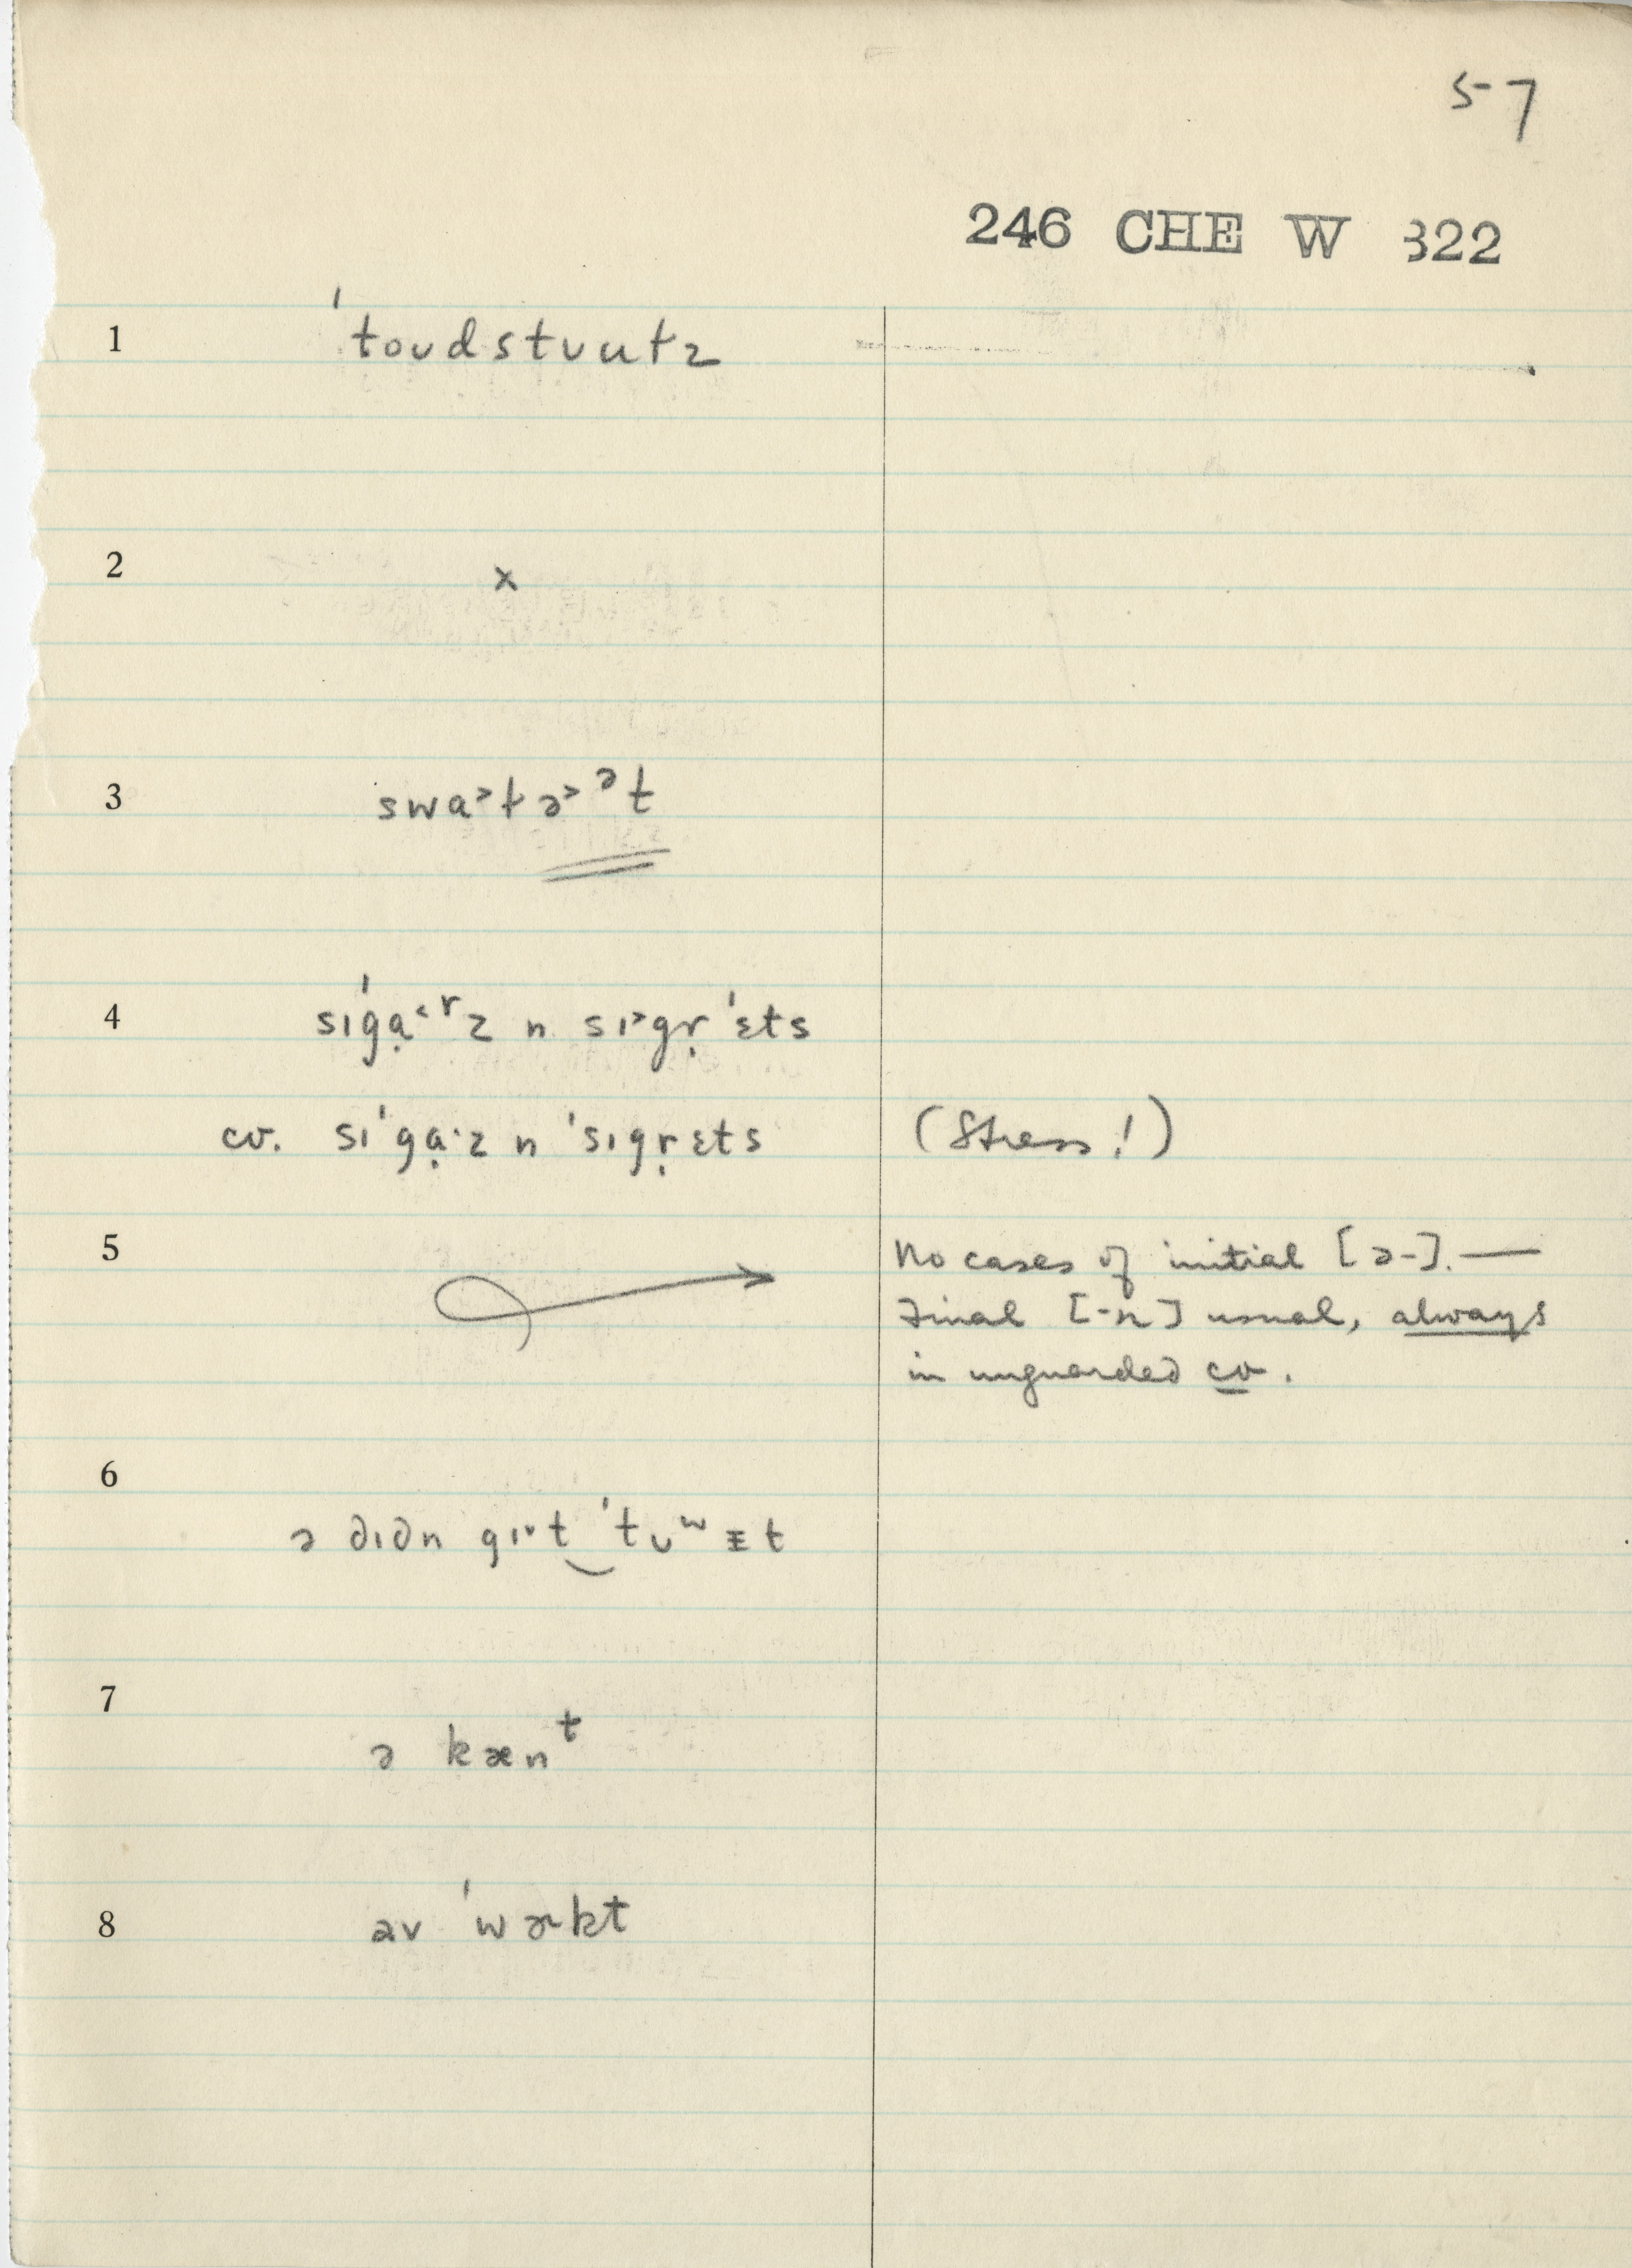 57
246 CHE W 322
1 ˈtoʊdstʊutz
2 x
3 swɑ˃tə˃ᵊt
4 sɪˈgɑ̣˂ʳz n sɪ˃gṛˈɛts
cv. sɪˈgɑ̣·z n ˈsɪgṛɛts (Stress!)
5 No cases of initial [ə-]. —
Final [-n] usual, always
in unguarded cv.
6 ə dɪdn gɪ˅t‿ˈtʊʷᵻt
7 ə kænᵗ
8 av ˈwɚkt